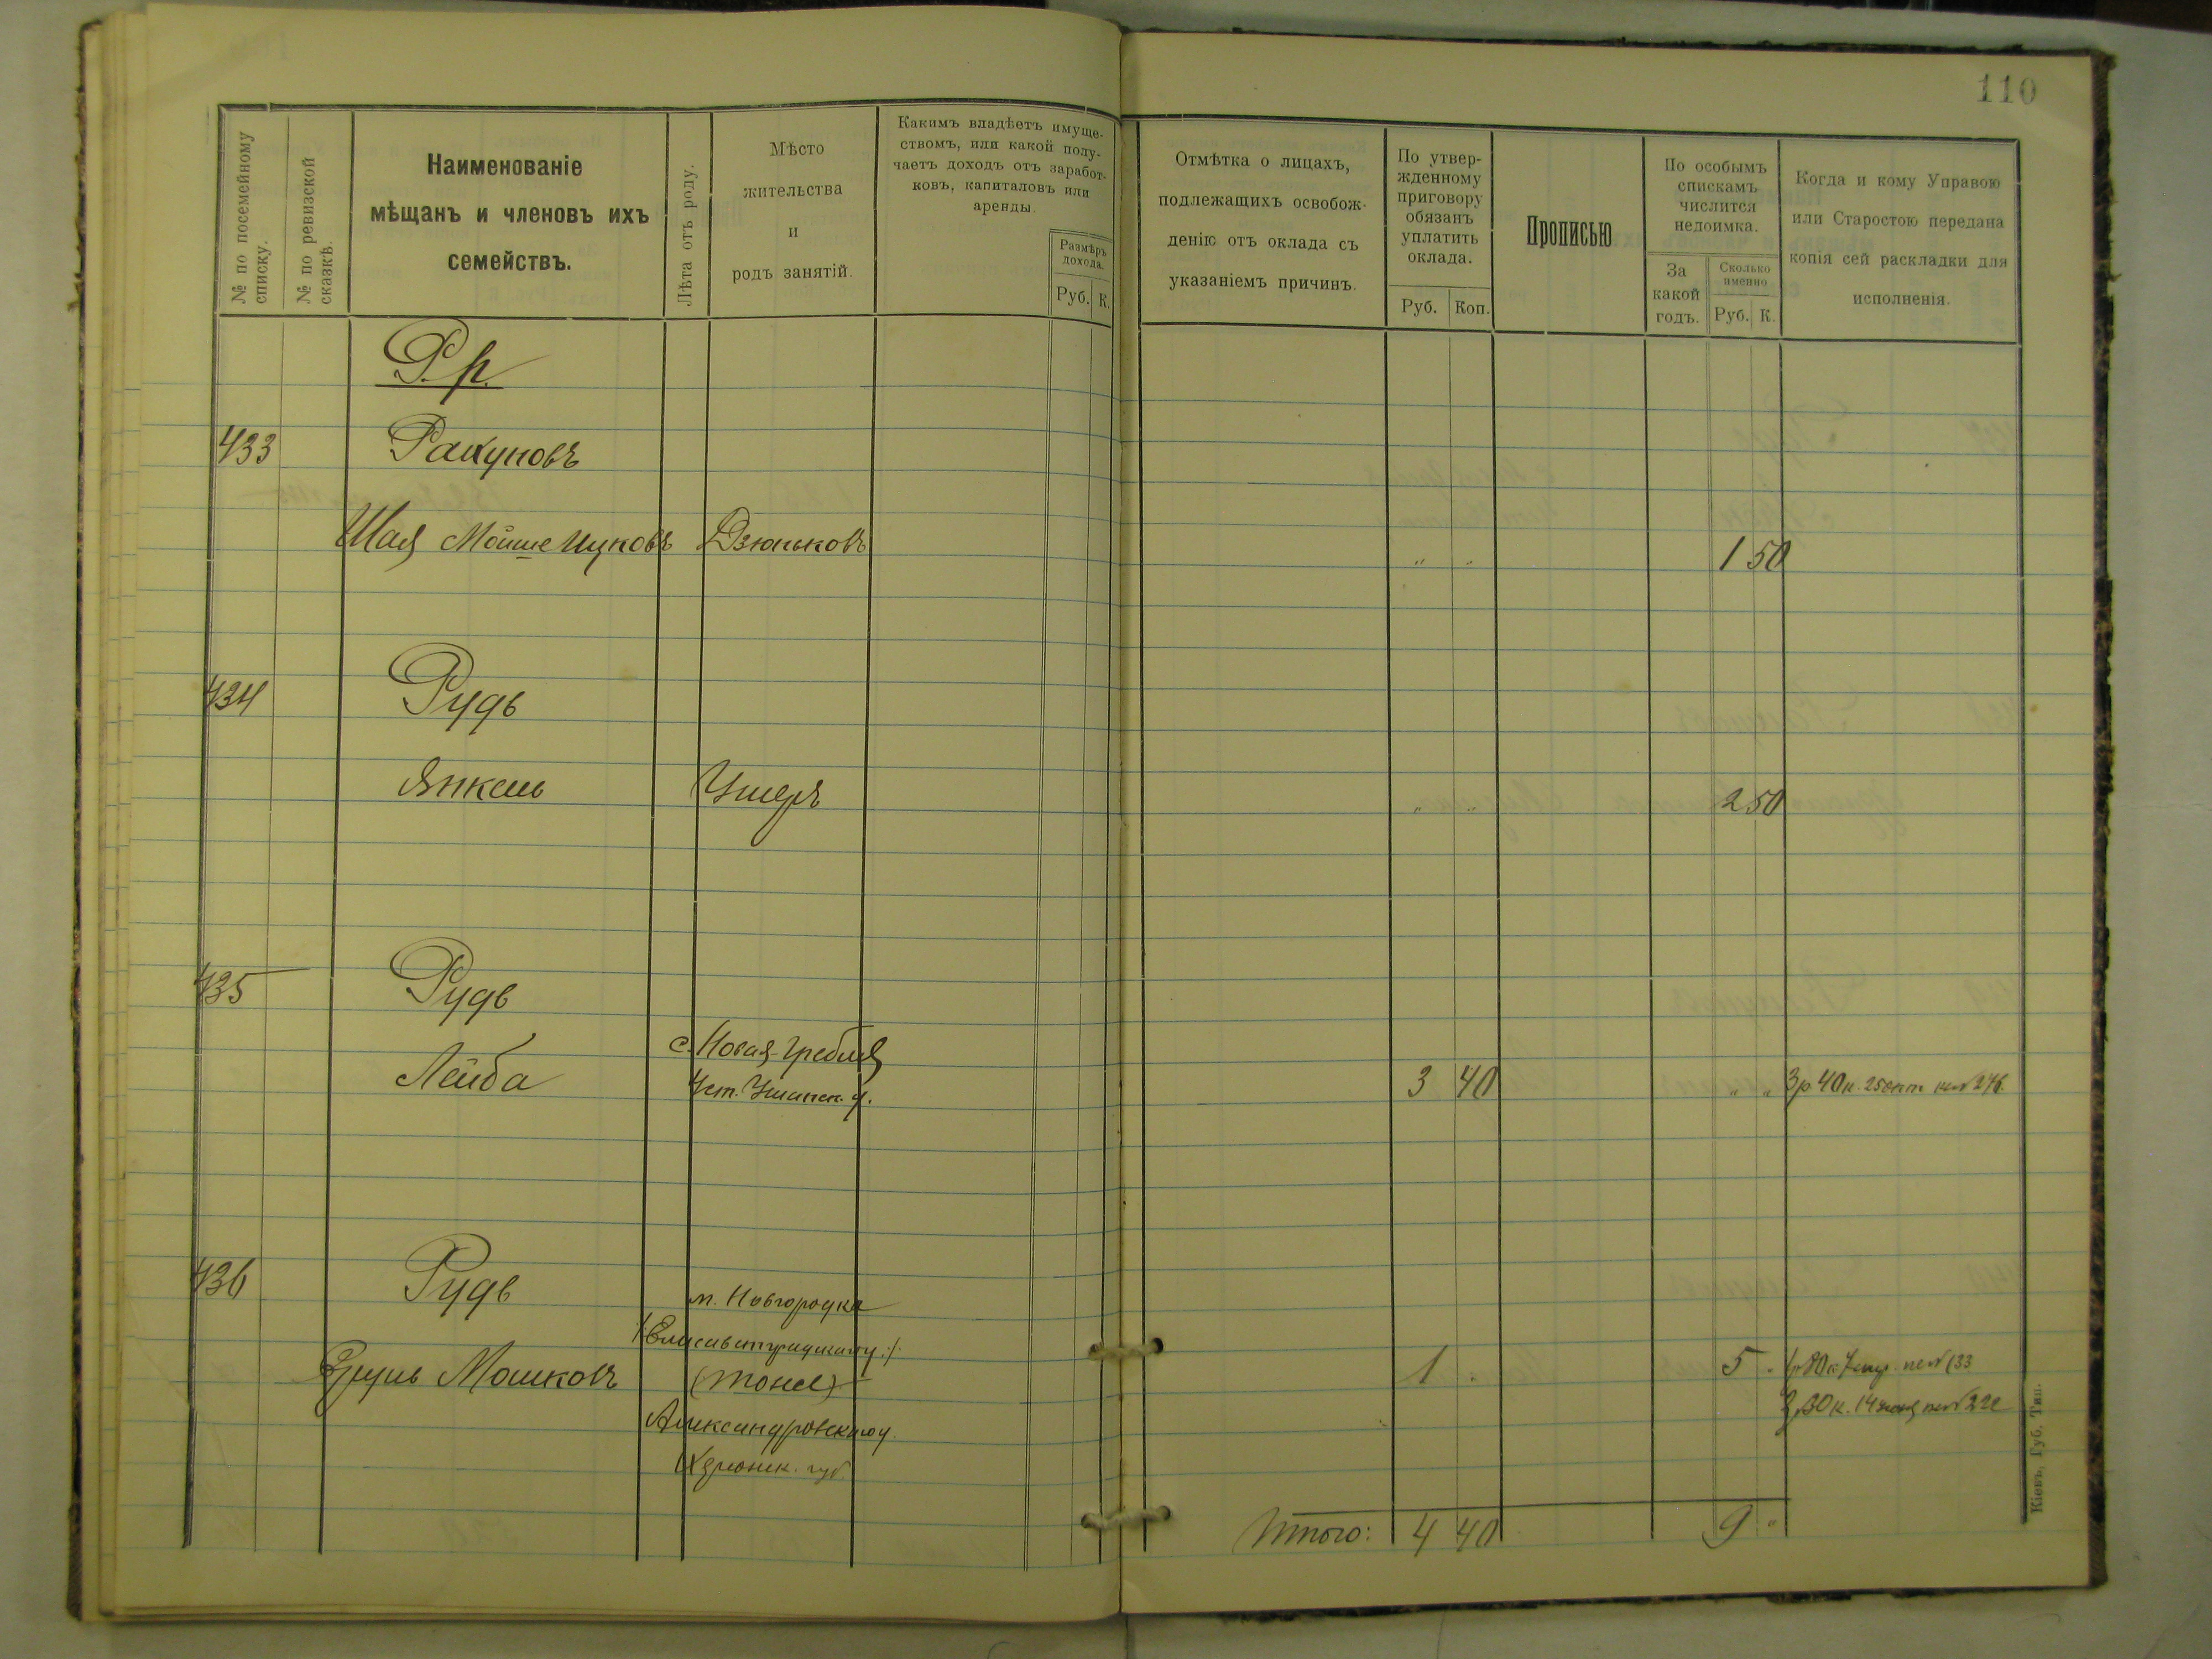 110
№ по посемейному списку.
№ по ревизской сказкѣ.
Наименованіе
мѣщанъ и членовъ ихъ
семействъ.
Лѣта отъ роду.
Мѣсто
жительства
и
родъ занятій.
Какимъ владѣетъ имуще-
ствомъ, или какой полу-
чаетъ доходъ отъ заработ-
ковъ, капиталовъ или
аренды.
Размѣръ
дохода.
Руб. К.
Отмѣтка о лицахъ,
подлежащихъ освобож-
денію отъ оклада съ
указаніемъ причинъ.
По утвер-
жденному
приговору
обязанъ
уплатить
оклада.
Руб. Коп.
Прописью
По особымъ
спискамъ
числится
недоимка.
За
какой
годъ.
Сколько
именно
Руб. К.
Когда и кому Управою
или Старостою передана
копія сей раскладки для
исполненія.
Р. р.
433 Рахуновъ
Шая Мойше Ицковъ Дзюньковъ " " 1 50
434 Рудь
Янкель " " 2 50
435 Рудь
с. Новая-Гребля
Лейба 3 40 " " 3 р 40 к. 25 окт 276.
436 Рудь
м. Новгородка
Мошковъ 1 " 5 "
Александровскаго у.
Итого: 4 40 9 "
Кіевъ, Губ. Тип.